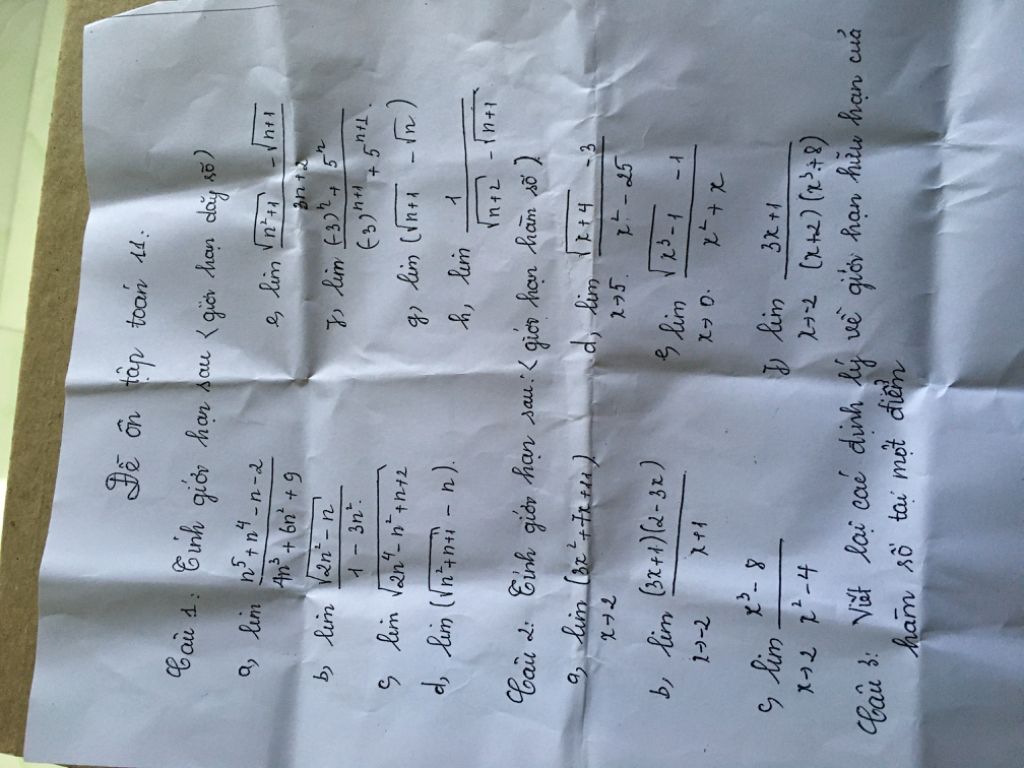 Đề ôn tập toán 11:
Câu 1: Tính giới hạn sau <giới hạn dãy số>
a, lim (n^5 + n^4 - n - 2)/(4n^3 + 6n^2 + 9)
e, lim (√(n^2+1) - √(n+1))/(3n+2)
b, lim √(2n^2 - n)/(1 - 3n^2)
f, lim ((-3)^n + 5^n)/((-3)^(n+1) + 5^(n+1))
c, lim √(2n^4 - n^2 + n + 2)
g, lim (√(n+1) - √n)
d, lim (√(n^2+n+1) - n).
h, lim 1/(√(n+2) - √(n+1))
Câu 2: Tính giới hạn sau: <giới hạn hàm số>
a, lim x→2 (3x^2 + 7x + 11)
d, lim x→5 (√(x+4) - 3)/(x^2 - 25)
b, lim x→-2 (3x+1)(2-3x)/(x+1)
e, lim x→0 (√(x^3-1) - 1)/(x^2 + x)
c, lim x→2 (x^3 - 8)/(x^2 - 4)
f, lim x→-2 (3x+1)/((x+2)(x^3+8))
Câu 3: Viết lại các định lý về giới hạn hữu hạn của
hàm số tại một điểm